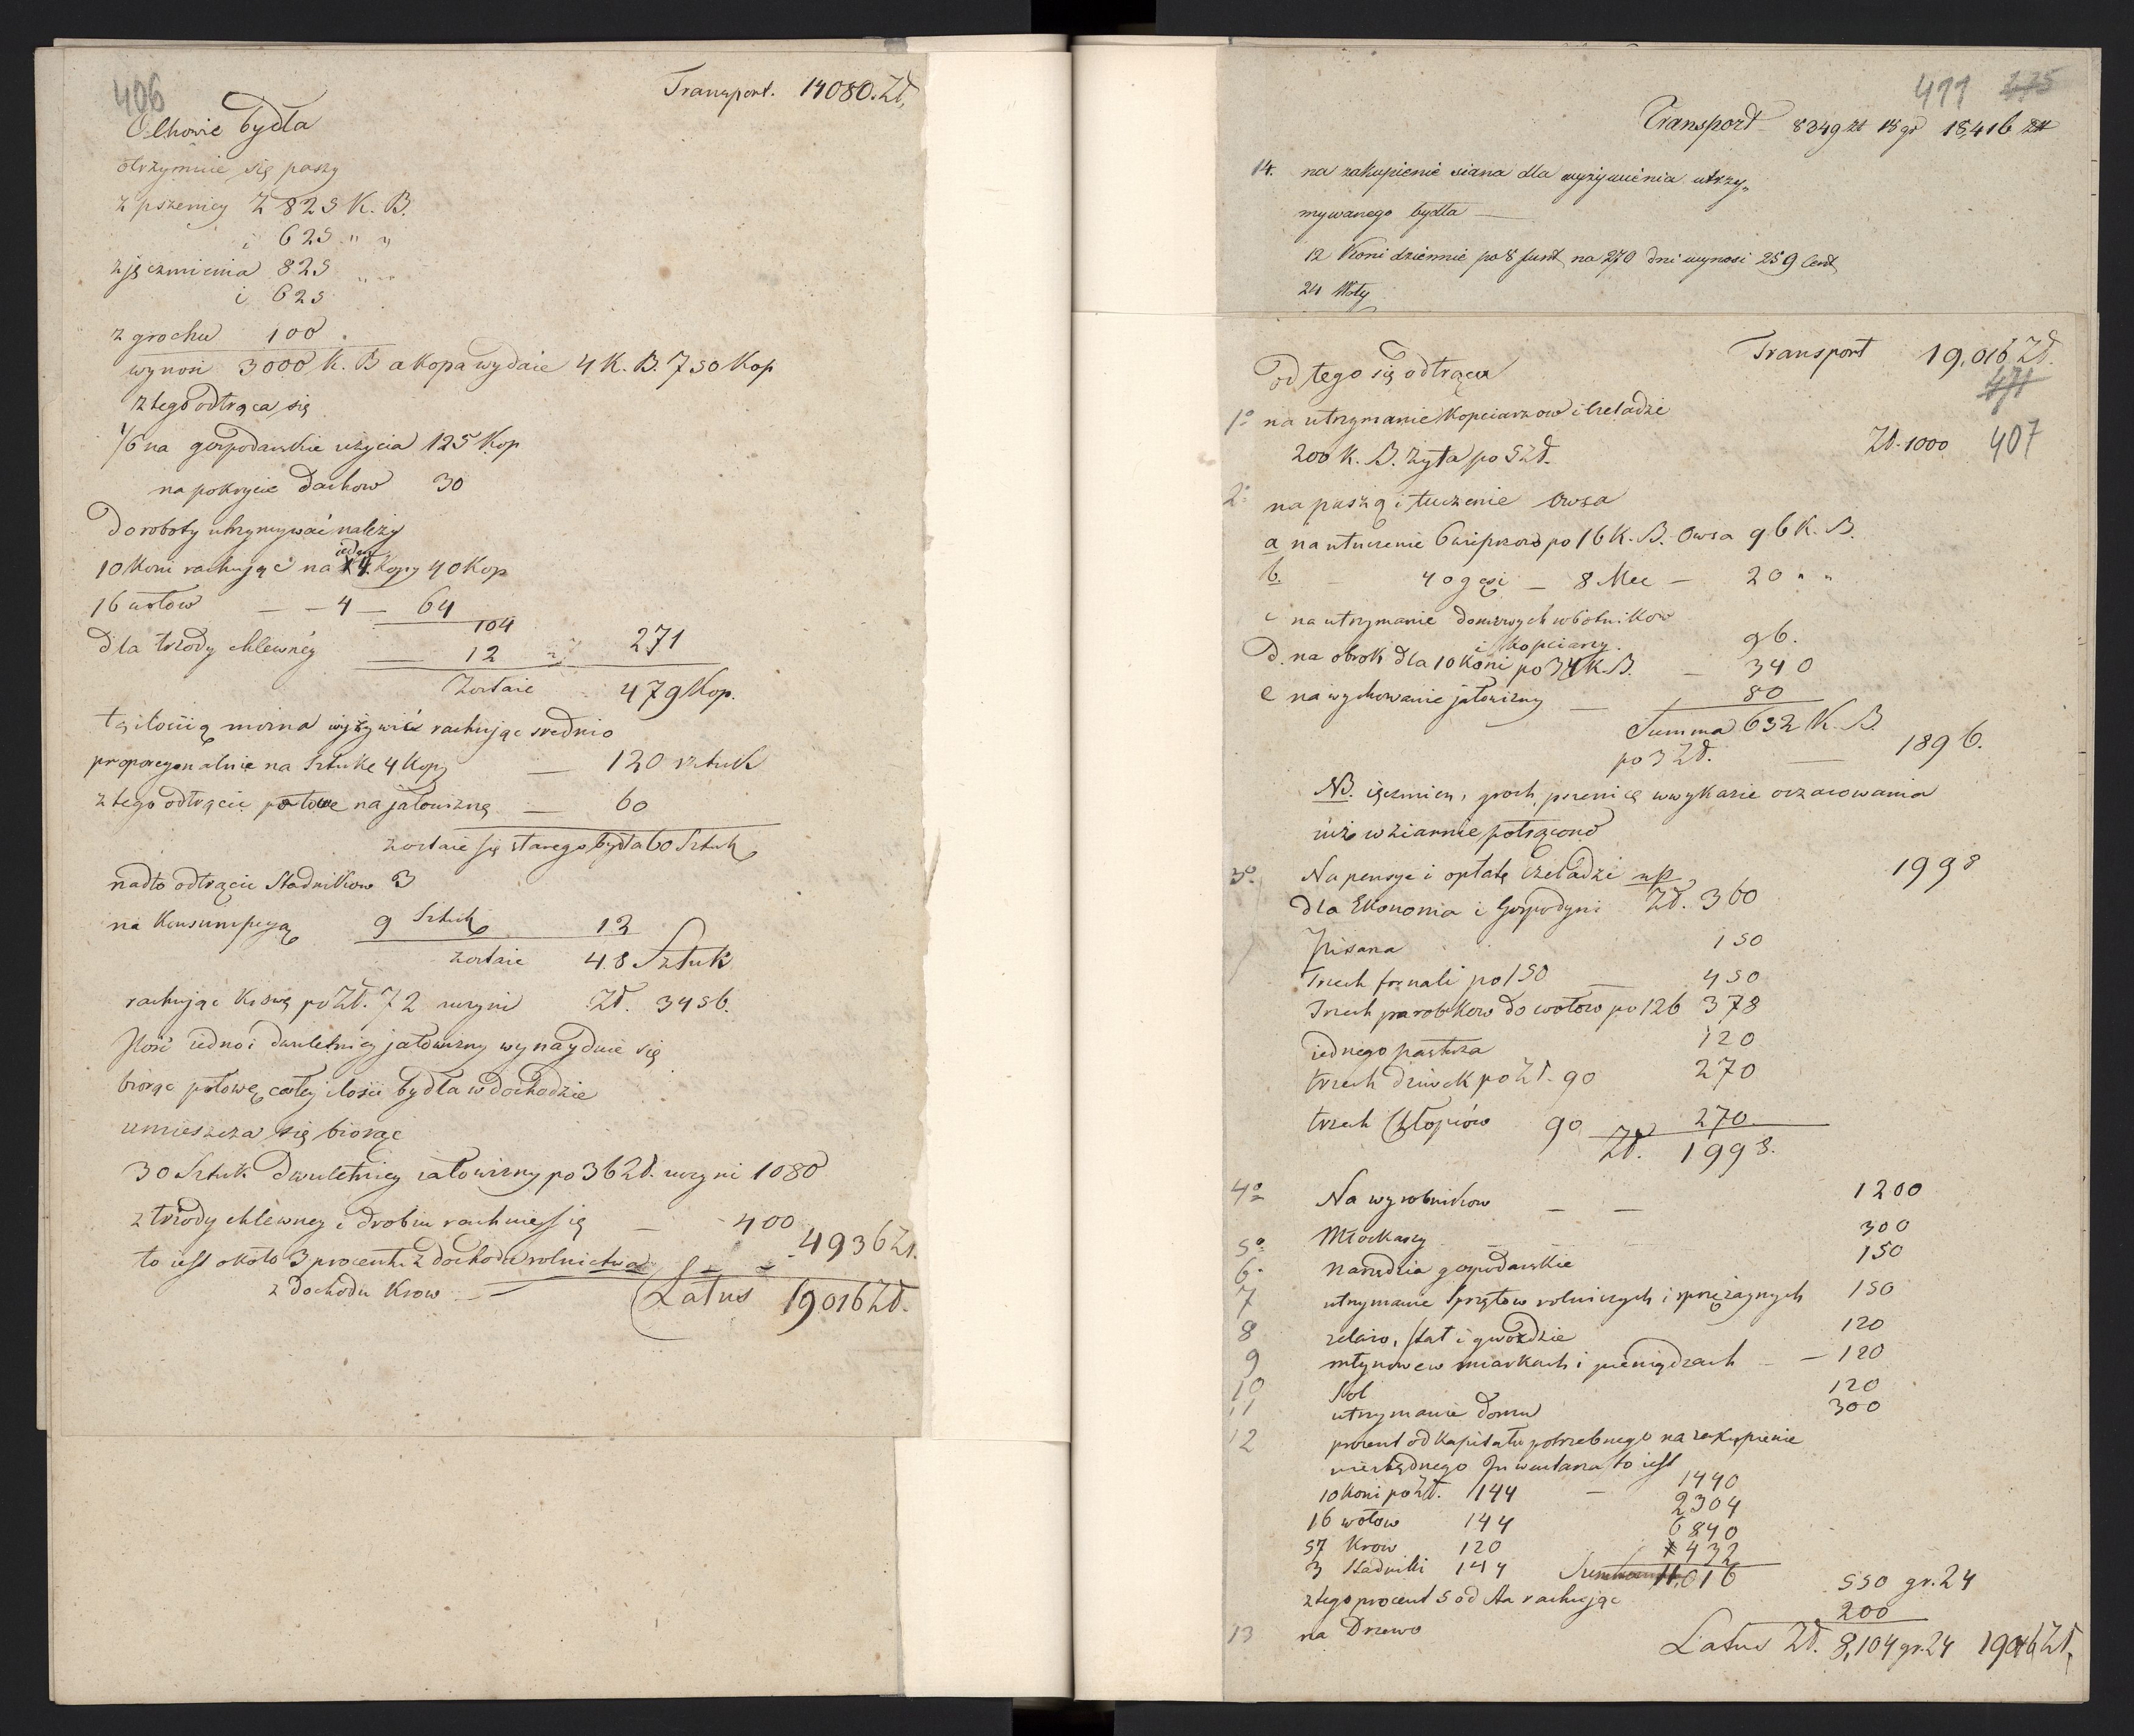 406
Transport. 14080. Zł.
O Chowie bydła
otrzymuie się paszy
z pszenicy Z 825 K. B.
i 625 " "
z jęczmienia 825 " "
i 625
z grochu 100
wynosi 3000 K. B a kopa wydaie 4 K. B. 750 Kop
z tego odtrąca się
1/6 na gospodarskie użycia 125 Kop
na pokrycie dachow 30
Do roboty utrzymywać należy
10 Koni rachując na 4 Kopy 40 Kop
16 wołow — — 4 — 64
104
dla trzody chlewney — 12 271
Zostaie 479 Kop.
tą ilością można wyżywić rachując srednio
proporcyonalnie na Sztukę 4 Kopy — 120 sztuk
z tego odtrącić połowę na jałowiznę — 60
zostaie się starego bydła 60 Sztuk
nadto odtrącić Stadnikow 3
na Konsumpcyą 9 Sztuk 12
zostaie 48 Sztuk
rachując Krowę po Zł. 72 uczyni Zł. 3456.
Ilość iedno i dwuletniey jałowizny wynaydzie się
biorąc połowę całey ilości bydła w dochodzie
umieszcza się biorąc
30 Sztuk dwuletniey jałowizny po 36 Zł. uczyni 1080
z trzody chlewney i drobiu rachuie się — 400
4936 Zł.
to iest około 3 procentu z dochodu rolnictwa
z dochodu Krow —
Latus 19,016 Zł.
411 275
Transport 8349 zł 18 gr 18,416 zł
14. na zakupienie siana dla wyżywienia utrzy„
mywanego bydła —
12 Koni dziennie po 8 funt na 270 dni wynosi 259 Cent
24 Woły
Transport 19,016 Zł.
471
407
od tego się odtrąca
1° na utrzymanie Kopciarzow i Czeladzi
200 K. B. żyta po 5 Zł. Zł. 1000
2° na paszę i tuczenie Owsa
a na utuczenie 6 wieprzow po 16 K. B. Owsa 96 K. B.
b. — 40 gęsi — 8 Mec — 20 " "
c na utrzymanie domowych robotnikow
i Kopciarzy. 96.
d. na obrok dla 10 Koni po 34 K. B. — 340
e na wychowanie jałowizny — 80
Summa 632 K. B.
po 3 Zł. — 1896.
NB. ięczmien, groch, pszenicę w wykazie oszacowania
iuż w ziarnie potrącono
3° Na pensye i opłatę Czeladzi np 1998
dla Ekonoma i Gospodyni Zł. 360
Pisarza 150
Trzech fornali po 150 — 450
Trzech parobkow do wołow po 126 378
iednego pastucha 120
trzech dziewek po Zł. 90 270
trzech Chłopców 90 270
Zł. 1998.
4° Na wyrobnikow — — 1200
5° Młockarzy 300
6. narzędzia gospodarskie 150
7 utrzymanie Sprzętow rolniczych i sprzężaynych 150
8 żelazo, stal i gwoździe 120
9 młynowe w miarkach i pieniądzach — 120
10 Sol 120
11 utrzymanie domu 300
12 procent od kapitału potrzebnego na zakupienie
niezbędnego Inwentarza to iest
10 Koni po Zł. 144 — 1440
16 wołow 144 2304
57 Krow 120 6840
3 Stadniki 144 432
Summa 11,016
z tego procent 5 od sta rachując 550 gr. 24
13 na Drzewo 200
Latus Zł. 8,104 gr. 24 19016 Zł.